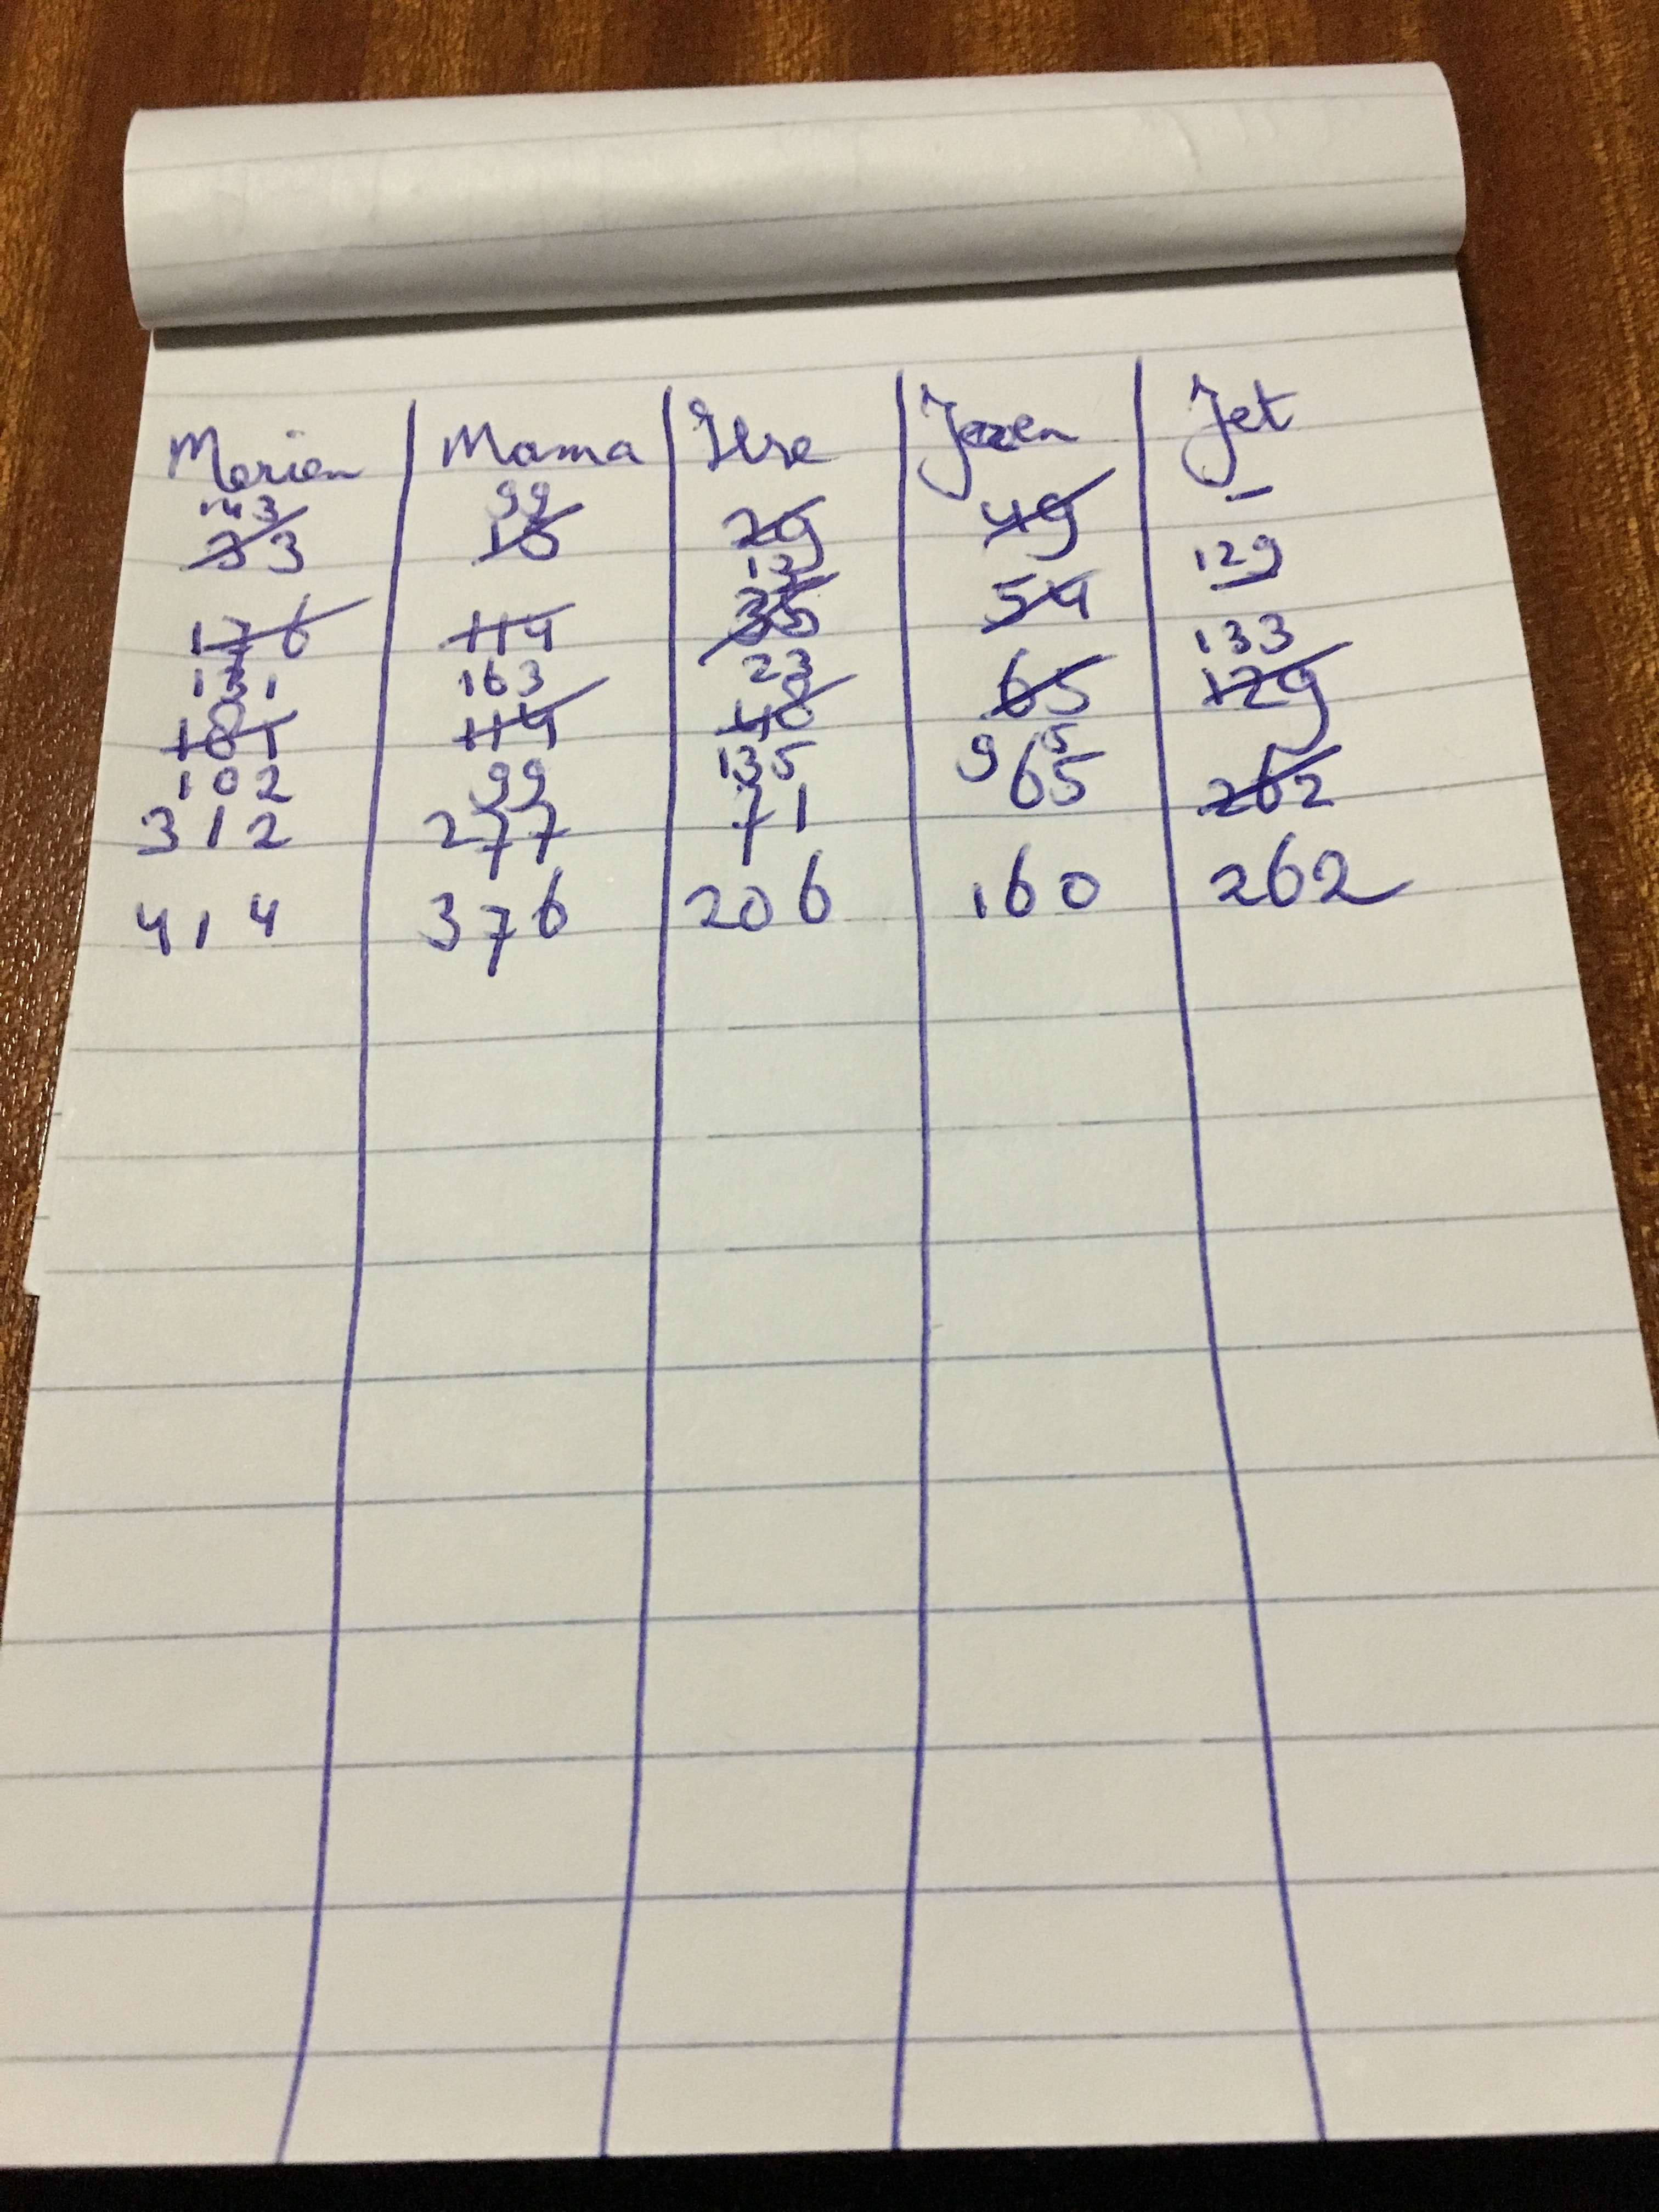 Marien Mama Ilse Jet
143 99
33 15 29 49 -
13 129
176 114 35 54 -
131 163 23 133
181 114 48 65 129
102 99 135 95
312 277 71 65 262
414 376 206 160 262